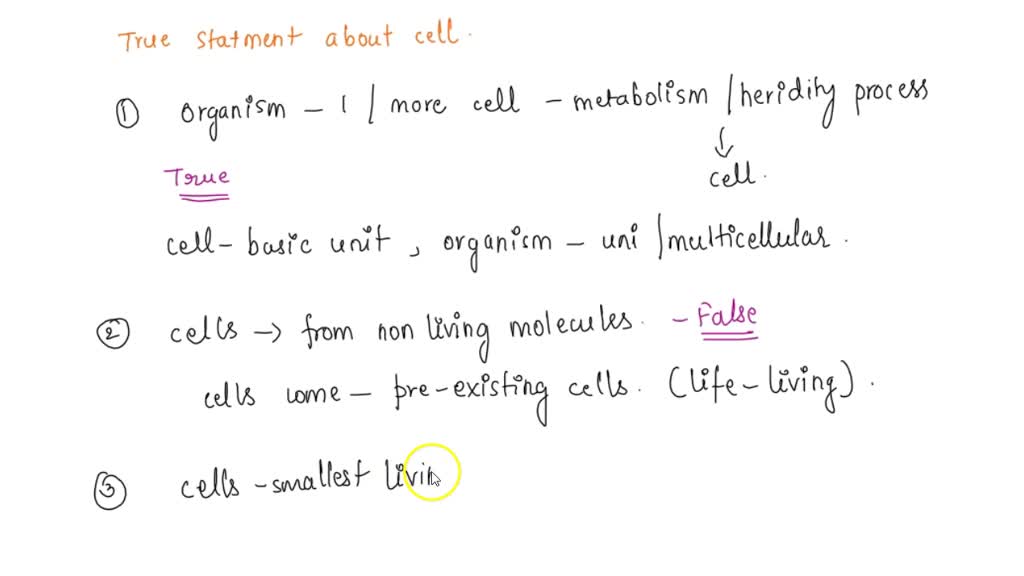 True statment about cell.
① organism - 1 / more cell - metabolism / heridity process
↓
True
cell.
cell - basic unit, organism - uni / multicellular.
② cells → from non living molecules. - False
cells come - pre-existing cells. (life - living).
③ cells - smallest livin